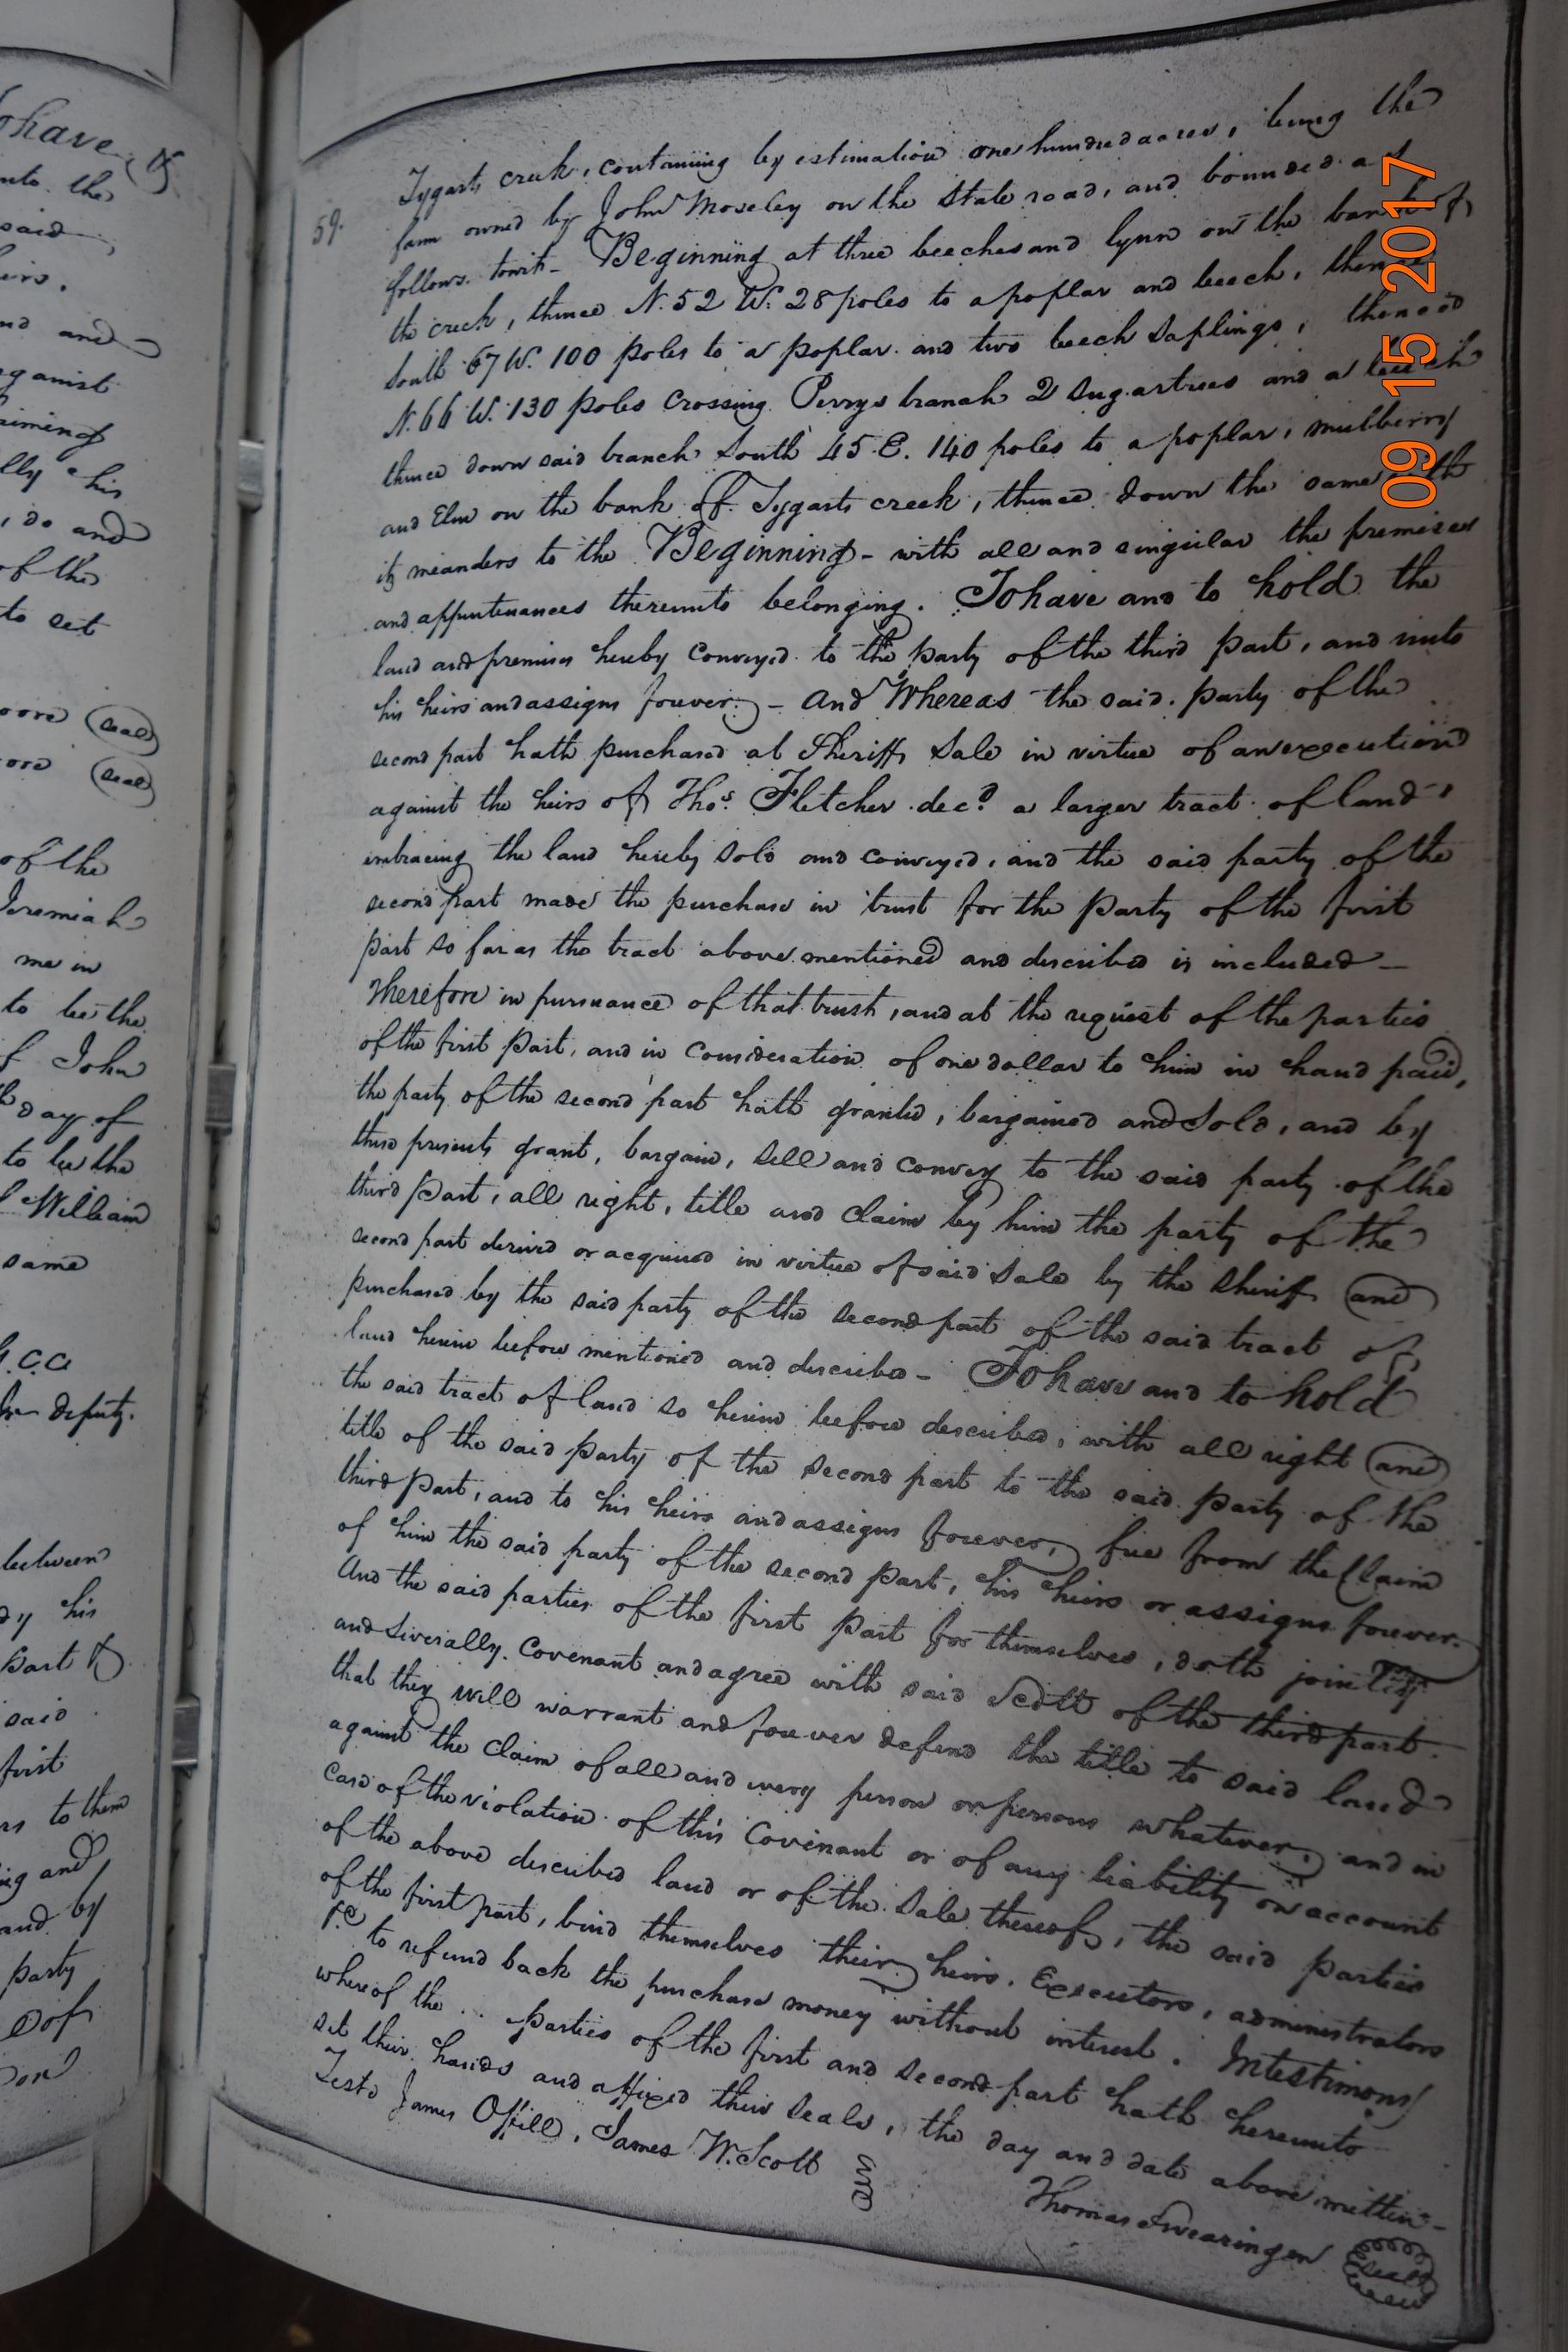 ohave &
nto the
said
eirs.
nd and
against
lly his
, do and
of the
to set
oore (seal)
ore (seal)
of the
Jeremiah
me in
to be the
John
day of
to be the
William
same
G.C.C.
deputy.
between
dy his
part &
said
first
rs to them
ing and
and by
party
59.
Tygarts creek, containing by estimation one hundred acres, being the
farm owned by John Moseley on the State road, and bounded as
follows. towit - Beginning at three beeches and lynn on the bank of
the creek, thence N. 52 W. 28 poles to a poplar and beech, thence
South 67 W. 100 poles to a poplar and two beech Saplings, thence
N. 66 W. 130 poles crossing Perrys branch 2 sugartrees and a beech
thence down said branch South 45 E. 140 poles to a poplar, mulberry
and Elm on the bank of Tygarts creek, thence down the same with
its meanders to the Beginning - with all and singular the premises
and appurtenances thereunto belonging. To have and to hold the
land and premises hereby Conveyed to the party of the third part, and unto
his heirs and assigns forever. - And Whereas the said party of the
second part hath purchased at Sheriffs Sale in virtue of an execution
against the heirs of Thos. Fletcher decd. a larger tract of land,
embracing the land hereby sold and conveyed, and the said party of the
second part made the purchase in trust for the party of the first
part so far as the tract above mentioned and described is included -
Therefore in pursuance of that trust, and at the request of the parties
of the first part, and in Consideration of one dollar to him in hand paid,
the party of the second part hath granted, bargained and Sold, and by
these presents grant, bargain, sell and convey to the said party of the
third part, all right, title and claim by him the party of the
second part derived or acquired in virtue of said Sale by the sheriff and
purchased by the said party of the second part of the said tract of
land herein before mentioned and described - To have and to hold
the said tract of land so herein before described, with all right and
title of the said party of the second part to the said party of the
third part, and to his heirs and assigns forever, free from the Claim
of him the said party of the second part, his heirs or assigns forever.
And the said parties of the first part for themselves, doth jointly
and Severally Covenant and agree with said Scott of the third part
that they will warrant and forever defend the title to said land
against the claim of all and every person or persons whatever, and in
case of the violation of this Covenant or of any liability on account
of the above described land or of the sale thereof, the said parties
of the first part, bind themselves their heirs, Executors, administrators
&c to refund back the purchase money without interest. In testimony
whereof the .. parties of the first and second part hath hereunto
set their hands and affixed their seals, the day and date above written -
Teste James Offill, James W. Scott
Thomas Swearingen (seal)
09 15 2017